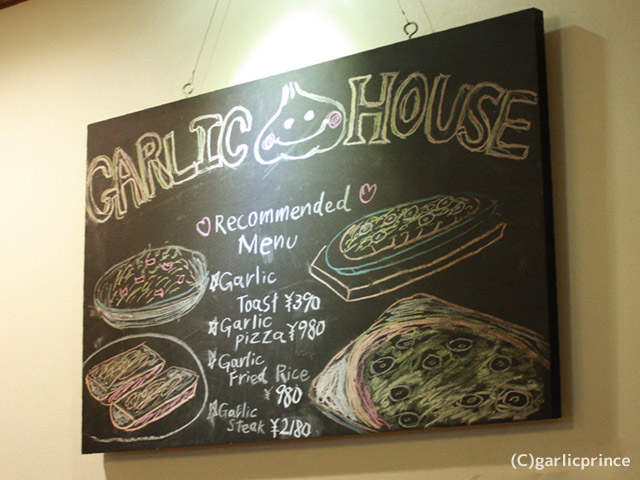 GARLIC HOUSE
Recommended
Menu
☆Garlic
Toast ¥390
☆Garlic
pizza ¥980
☆Garlic
Fried Rice
¥980
☆Garlic
Steak ¥2180
(C)garlicprince